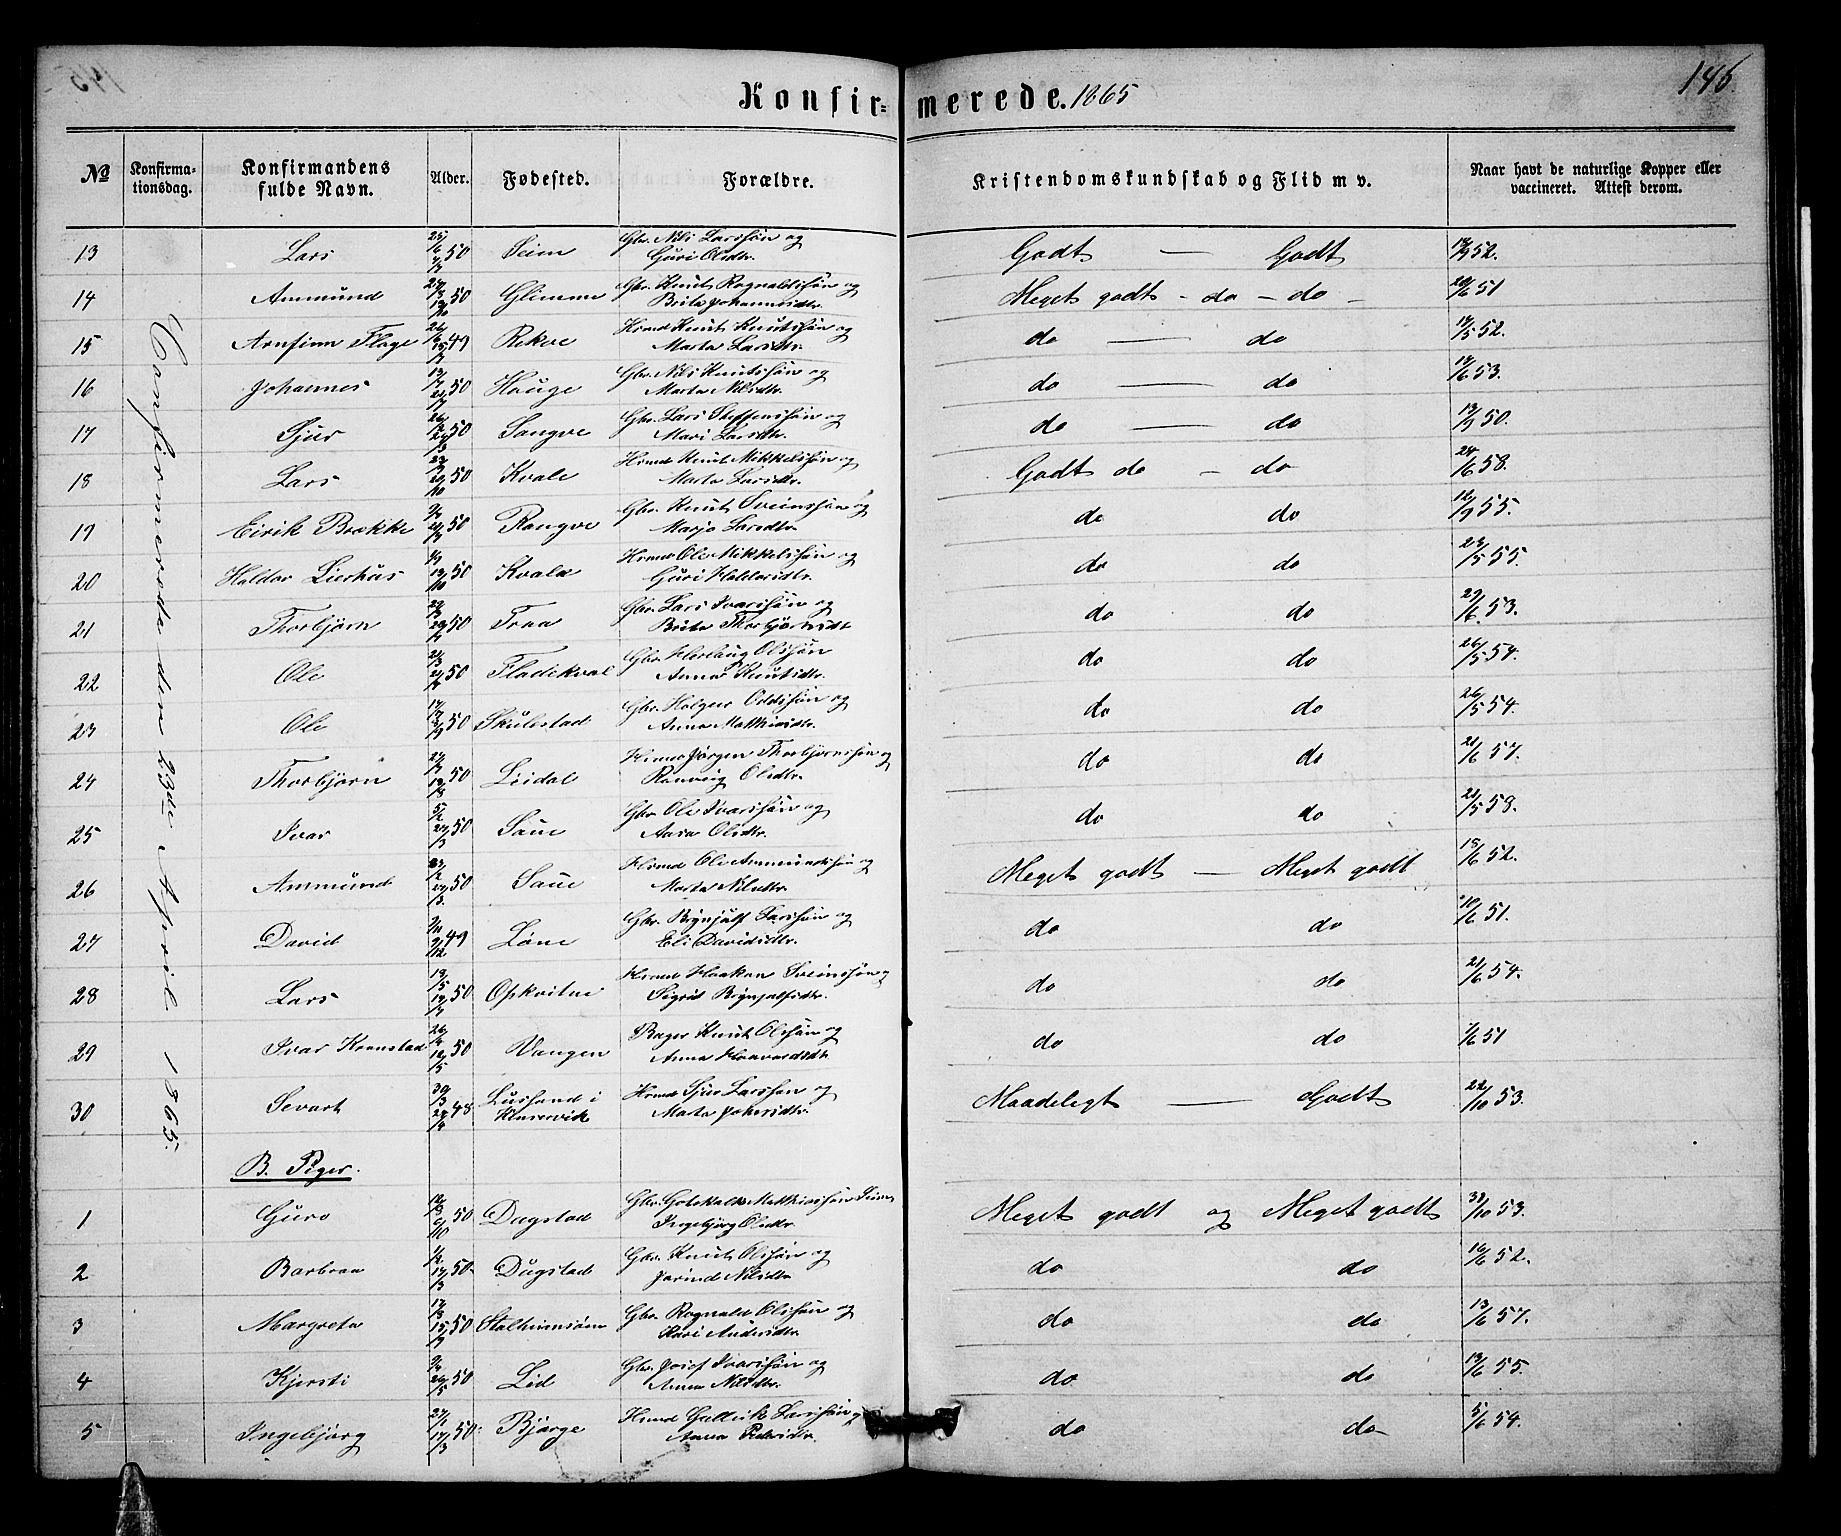 146
Konfirmerede. 1865
No Konfirmationsdag. Konfirmandens fulde Navn. Alder. Fødested. Forældre. Kristendomskundskab og Flid m v. Naar havt de naturlige Kopper eller vaccineret. Attest derom.
Confirmerede den 23de April 1865.
13 Lars 50 Seim Gbr. Nils Larssøn og Guri Olsdtr. Godt — Godt 52.
14 Ammund 50 Glimme Gbr. Knut Rognaldssøn og Brita Johannesdtr. Meget godt - do - do - 29/6 51
15 Arnfinn Flage 49 Rekve Hsmd Knut Knutssøn og Marta Larsdtr. do — do 52.
16 Johannes 50 Hauge Gbr. Nils Knutssøn og Marta Nilsdtr. do — do 53.
17 Sjur 50 Sangve Gbr. Lars Steffenssøn og Mari Larsdtr. do — do 13/9 50.
18 Lars 50 Kvale Hsmd Knut Mikkelssøn og Marta Larsdtr. Godt do - do 24/6 58.
19 Eirik Brække 50 Rangve Gbr. Knut Sveinssøn og Marjo Larsdtr. do do 55.
20 Haldor Lierhus 50 Kvale Hsmd Ole Mikkelssøn og Guri Haldorsdtr. do do 23/5 55.
21 Thorbjørn 50 Traa Gbr. Lars Ivarssøn og Brita Thorbjørnsdt do do 29/6 53.
22 Ole 50 Fladekval Gbr. Herlaug Olssøn Anna Knutsdtr. do do 26/5 54.
23 Ole 50 Skulestad Gbr. Holger Oddssøn og Anna Mathiasdtr. do do 26/5 54.
24 Thorbjørn 50 Leidal Hsmd Jørgen Thorbjørnssøn og Ranveig Olsdtr. do do 21/6 57.
25 Ivar 5/2 50 Saue Gbr. Ole Ivarssøn og Anna Olsdtr. do do 21/5 58.
26 Ammund 50 Saue Hsmd Ole Ammundssøn og Marta Nilsdtr. Meget godt — Meget godt 18/6 52.
27 David 49 Løne Gbr. Brynjulf Larssøn og Eli Davidsdtr. do do 10/6 51.
28 Lars 50 Opkvitne Hsmd Haakon Sveinssøn og Sigrid Brynjulfsdtr. do do 21/6 54.
29 Ivar Kronstad 50 Vangen Bager Knut Olssøn og Anna Haavardsdtr do do 51
30 Sevart 30/3 48 Lussand i Kinservik Hsmd Sjur Larssøn og Marta Johnsdtr. Maadeligt — Godt 22/10 53.
B. Piger.
1 Guro 50 Dagstad Gbr. Gotskalk Mathiassøn Seim Ingebjørg Olsdtr Meget godt og Meget godt 31/10 53.
2 Barbraa 50 Dugstad Gbr. Knut Olssøn og Jorind Nilsdtr do do 52.
3 Margreta 50 Stalheimsøen Gbr. Rognald Olssøn og Kari Andersdtr. do do 13/6 57.
4 Kjersti 50 Lid Gbr. Josef Ivarssøn og Anna Nilsdtr. do do 13/6 55.
5 Ingebjørg 50 Bjørge Hsmd Gullik Larssøn og Anna Pedersdtr. do do 5/6 54.